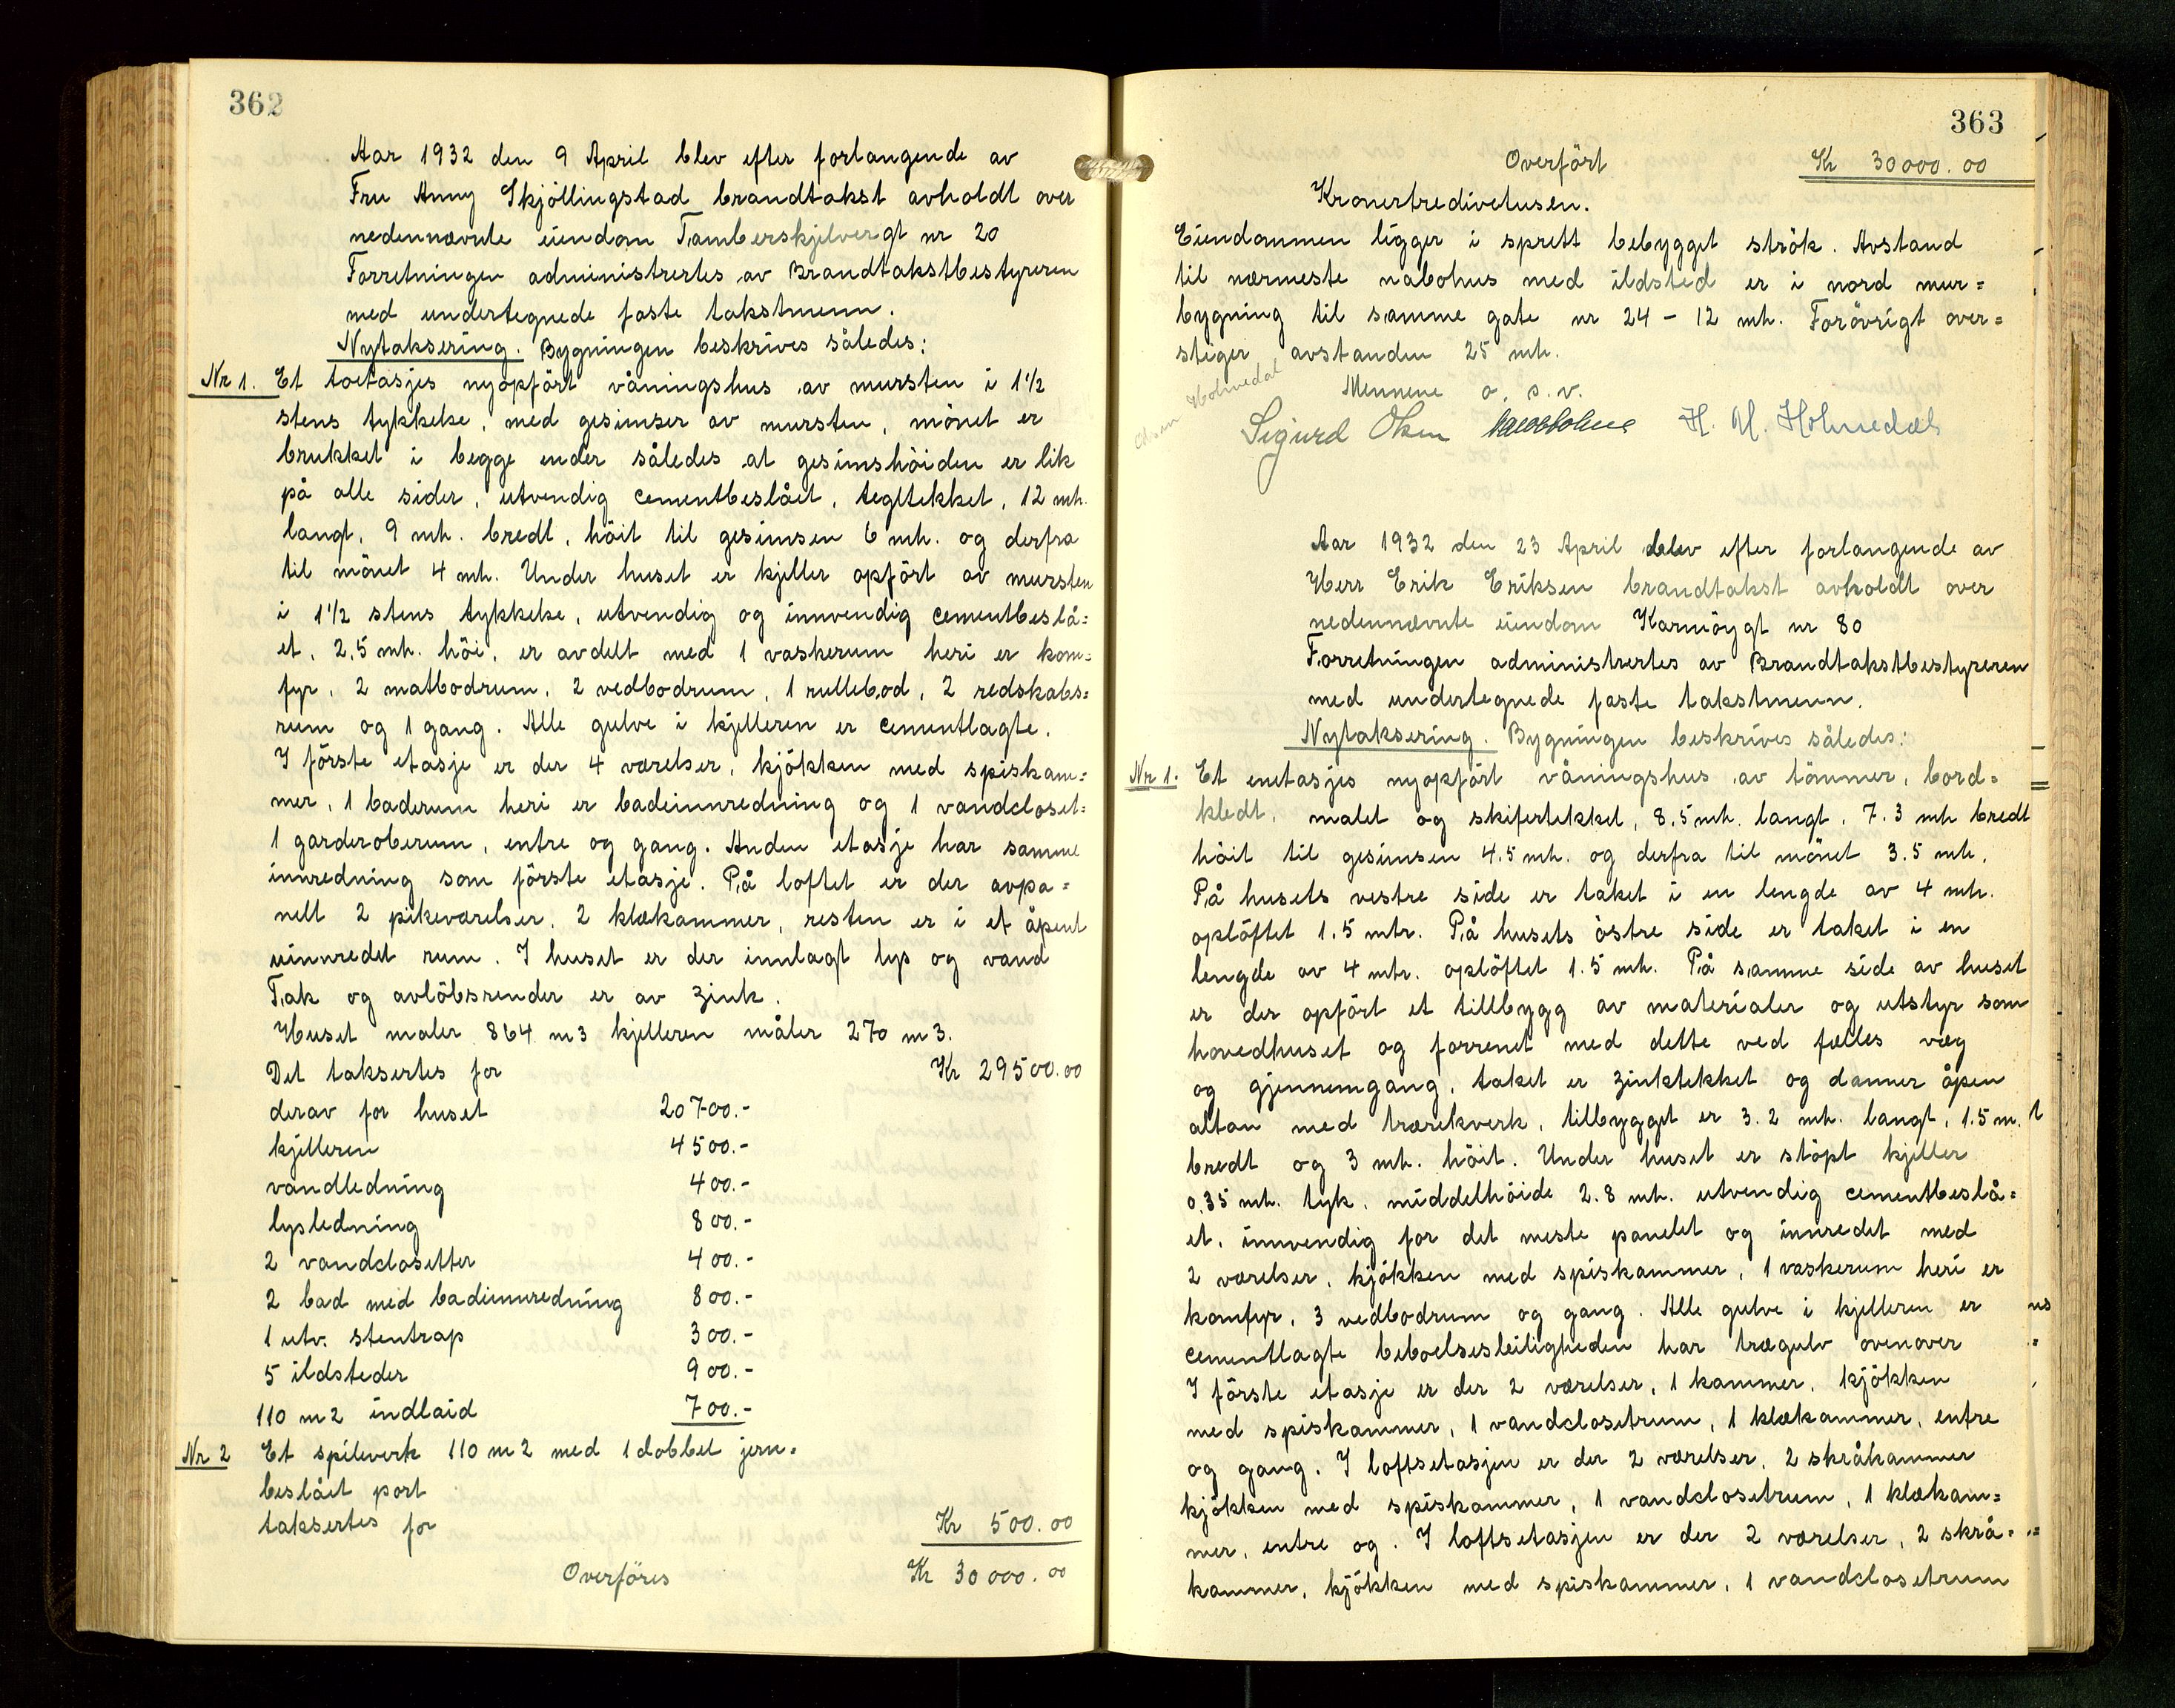 362
Aar 1932 den 9 April blev efter forlangende av
Fru Anny Skjöllingstad brandtakst avholdt over
nedennævnte eiendom Tamberskjelvergt nr 20
Forretningen administrertes av Brandtakstbestyreren
med undertegnede faste takstmenn.
Nytaksering. Bygningen beskrives således:
Nr 1. Et toetasjes nyopfört våningshus av mursten i 1½
stens tykkelse, med gesimser av mursten, mönet er
brukket i begge ender således at gesimshöiden er lik
på alle sider, utvendig cementbeslået, tegltekket, 12 mtr.
langt, 9 mtr. bredt, höit til gesimsen 6 mtr. og derfra
til mönet 4 mtr. Under huset er kjeller opfört av mursten
i 1½ stens tykkelse, utvendig og innvendig cementbeslå=
et, 2,5 mtr. höi, er avdelt med 1 vaskerum heri er kom=
fyr, 2 matbodrum, 2 vedbodrum, 1 rullebod, 2 redskabs=
rum og 1 gang. Alle gulve i kjelleren er cementlagte.
I förste etasje er der 4 værelser, kjökken med spiskam=
mer, 1 baderum heri er badeinnredning og 1 vandcloset=
1 garderoberum, entre og gang. Anden etasje har samme
innredning som förste etasje. På loftet er der avpa=
nelt 2 pikeværelser, 2 klækammer, resten er i et åpent
uinnredet rum. I huset er der innlagt lys og vand
Tak og avlöbsrender er av zink.
Huset maler 864 m3 kjelleren måler 270 m3.
Det taksertes for Kr 29500.00
derav for huset 20700.-
kjelleren 4500.-
vandledning 400.-
lysledning 800.-
2 vandclosetter 400.-
2 bad med badeinnredning 800.-
1 utv. stentrap 300.-
5 ildsteder 900.-
110 m2 indlaid 700.-
Nr 2 Et spileverk 110 m2 med 1 dobbel jern=
beslået port
taksertes for Kr 500.00
Overföres Kr 30000.00
363
Overfört Kr 30000.00
Kronertredivetusen.
Eiendommen ligger i sprett bebygget strök. Avstand
til nærmeste nabohus med ildsted er i nord mur=
bygning til samme gate nr 24 - 12 mtr. Forövrigt over=
stiger avstanden 25 mtr.
Mennene o. s. v.
Olsen Holmedal
Sigurd Olsen H. M. Holmedal
Aar 1932 den 23 April blev efter forlangende av
Herr Erik Eriksen brandtakst avholdt over
nedennævnte eiendom Karmöygt nr 80
Forretningen administrertes av Brandtakstbestyreren
med undertegnede faste takstmenn.
Nytaksering. Bygningen beskrives således:
Nr 1. Et enetasjes nyopfört våningshus av tömmer, bord=
kledt, malet og skifertekket, 8.5 mtr. langt, 7.3 mtr bredt
höit til gesimsen 4.5 mtr. og derfra til mönet 3.5 mtr.
På husets vestre side er taket i en lengde av 4 mtr.
oplöftet 1.5 mtr. På husets östre side er taket i en
lengde av 4 mtr. oplöftet 1.5 mtr. På samme side av huset
er der opfört et tillbygg av materialer og utstyr som
hovedhuset og forrenet med dette ved fælles væg
og gjennemgang, taket er zinktekket og danner åpen
altan med trærekverk, tilbygget er 3.2 mtr. langt, 1.5 m.
bredt og 3 mtr. höit. Under huset er stöpt kjeller
0,35 mtr. tyk, middelhöide 2.8 mtr. utvendig cementbeslå=
et, innvendig for det meste panelet og innredet med
2 værelser, kjökken med spiskammer, 1 vaskerum heri er
komfyr, 3 vedbodrum og gang. Alle gulve i kjelleren er
cementlagte beboelsesleiligheden har trægulv ovenover
I förste etasje er der 2 værelser, 1 kammer, kjökken
med spiskammer, 1 vandclosetrum, 1 klækammer, entre
og gang. I loftsetasjen er der 2 værelser, 2 skråkammer
kjökken med spiskammer, 1 vandclosetrum, 1 klækam=
mer, entre og. I loftsetasjen er der 2 værelser, 2 skrå=
kammer, kjökken med spiskammer, 1 vandclosetrum